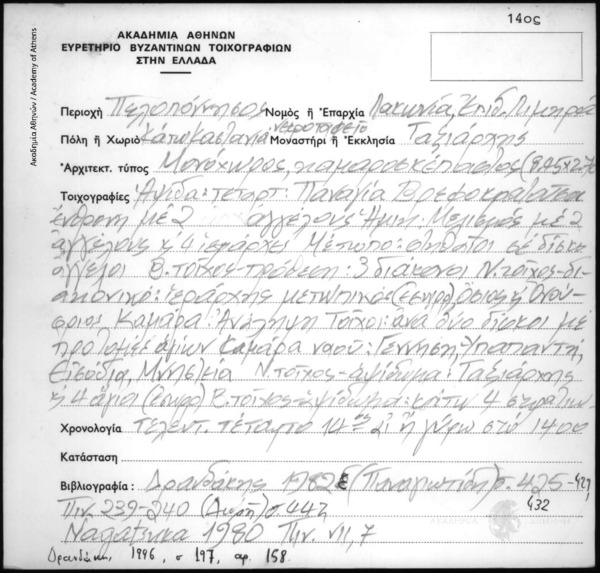 14ος
ΑΚΑΔΗΜΙΑ ΑΘΗΝΩΝ
ΕΥΡΕΤΗΡΙΟ ΒΥΖΑΝΤΙΝΩΝ ΤΟΙΧΟΓΡΑΦΙΩΝ
ΣΤΗΝ ΕΛΛΑΔΑ
Ακαδημία Αθηνών / Academy of Athens
Περιοχή Πελοπόννησος Νομός ή Επαρχία Λακωνία, Επιδ. Λιμηράς
Πόλη ή Χωριό Κάτω Καστανιά νεκροταφείο Μοναστήρι ή Εκκλησία Ταξιάρχης
Αρχιτεκτ. τύπος Μονόχωρος, καμαροσκέπαστος
Τοιχογραφίες Αψίδα: τεταρτ: Παναγία Βρεφοκρατούσα
ένθρονη με 2 αγγέλους Ημικ: Μελισμός με 2
αγγέλους κ 4 ιεράρχες Μέτωπο: στηθαίοι σε δίσκο
άγγελοι Β. τοίχος-πρόθεση: 3 διάκονοι Ν. τοίχος-δι-
ακονικό: ιεράρχης μετωπικός Όσιος Ονού-
φριος Καμάρα: Ανάληψη Τοίχοι: ανά δύο δίσκοι με
προτομές αγίων Καμάρα ναού: Γέννηση, Υπαπαντή,
Εισόδια, Μνηστεία Ν. τοίχος-αψίδωμα: Ταξιάρχης
κ 4 άγιοι Β. τοίχος-αψίδωμα: 4
Χρονολογία τελευτ. τέταρτο 14ου αι. ή γύρω στο 1400
Κατάσταση
Βιβλιογραφία: Δρανδάκης 1982 (Παναγιωτίδη) σ. 425-427,
432
Πιν. 239-240 (Δωρή) σ 442
1980 Πιν. VII, 7
Δρανδάκη, 1996, σ 197, αρ. 158